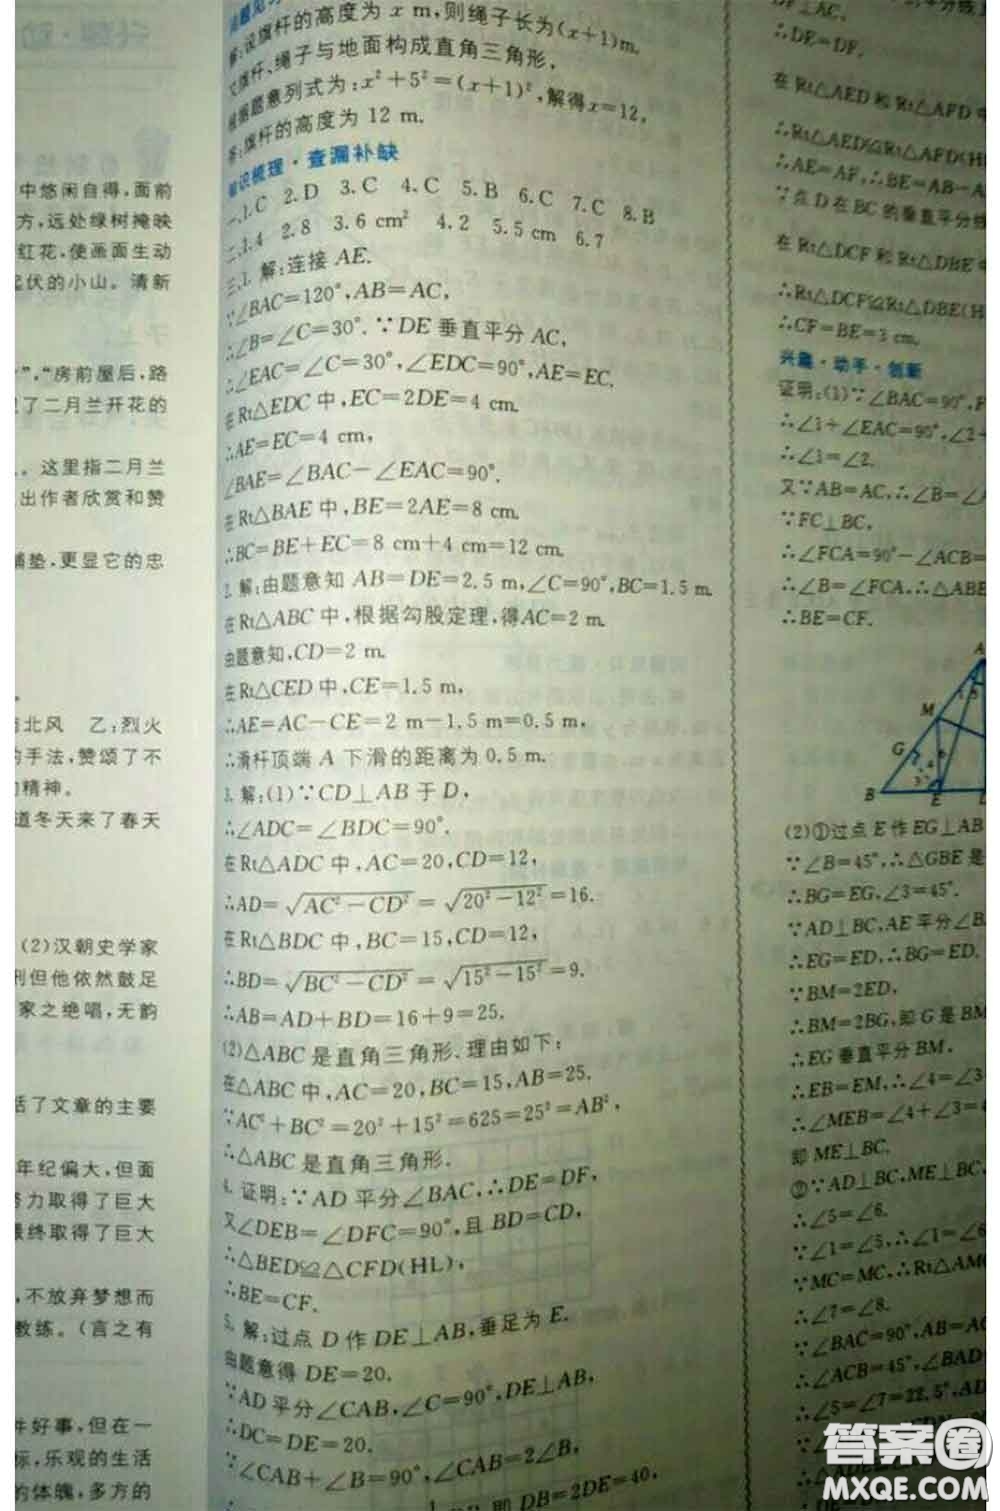 中悠闲自得,面前
方,远处绿树掩映
红花,使画面生动
起伏的小山。清新
”,“房前屋后,路
了二月兰开花的
。这里指二月兰
出作者欣赏和赞
铺垫,更显它的忠
北风 乙:烈火
的手法,赞颂了不
的精神。
道冬天来了春天
(2)汉朝史学家
刑但他依然鼓足
家之绝唱,无韵
括了文章的主要
年纪偏大,但面
努力取得了巨大
最终取得了巨大
,不放弃梦想而
教练。(言之有
件好事,但在一
标,乐观的生活
的体魄,多方的
解:设旗杆的高度为 x m,则绳子长为(x+1)m.
又旗杆、绳子与地面构成直角三角形,
根据题意列式为:x²+5²=(x+1)²,解得x=12,
答:旗杆的高度为 12 m.
知识梳理·查漏补缺
一、1.C 2.D 3.C 4.C 5.B 6.C 7.C 8.B
二、1.4 2.8 3.6 cm² 4.2 5.5 cm 6.7
三、1. 解:连接 AE.
∵∠BAC=120°,AB=AC,
∴∠B=∠C=30°.∵DE 垂直平分 AC,
∴∠EAC=∠C=30°,∠EDC=90°,AE=EC.
在 Rt△EDC 中,EC=2DE=4 cm.
∴AE=EC=4 cm,
∠BAE=∠BAC-∠EAC=90°.
在 Rt△BAE 中,BE=2AE=8 cm.
∴BC=BE+EC=8 cm+4 cm=12 cm.
2. 解:由题意知 AB=DE=2.5 m,∠C=90°,BC=1.5 m.
在 Rt△ABC 中,根据勾股定理,得AC=2 m.
由题意知,CD=2 m.
在 Rt△CED 中,CE=1.5 m,
∴AE=AC-CE=2 m-1.5 m=0.5 m,
∴滑杆顶端 A 下滑的距离为 0.5 m.
3. 解:(1)∵CD⊥AB 于 D,
∴∠ADC=∠BDC=90°.
在 Rt△ADC 中,AC=20,CD=12,
∴AD=√(AC²-CD²)=√(20²-12²)=16.
在 Rt△BDC 中,BC=15,CD=12,
∴BD=√(BC²-CD²)=√(15²-15²)=9.
∴AB=AD+BD=16+9=25.
(2)△ABC 是直角三角形.理由如下:
在△ABC 中,AC=20,BC=15,AB=25.
∵AC²+BC²=20²+15²=625=25²=AB²,
∴△ABC 是直角三角形.
4. 证明:∵AD 平分∠BAC,∴DE=DF,
又∠DEB=∠DFC=90°,且 BD=CD,
∴△BED≌△CFD(HL),
∴BE=CF.
5. 解:过点 D 作 DE⊥AB,垂足为 E.
由题意得 DE=20.
∵AD 平分∠CAB,∠C=90°,DE⊥AB,
∴DC=DE=20.
∵∠CAB+∠B=90°,∠CAB=2∠B,
即 DB=2DE=40,
DF⊥AC.
∴DE=DF.
在 Rt△AED 和 Rt△AFD 中
∴Rt△AED≌Rt△AFD(H
∴AE=AF,∴BE=AB-A
∵点 D 在 BC 的垂直平分线
在 Rt△DCF 和 Rt△DBE 中
∴Rt△DCF≌Rt△DBE(H
∴CF=BE=3 cm.
兴趣·动手·创新
证明:(1)∵∠BAC=90°,F
∴∠1+∠EAC=90°,∠2+
∴∠1=∠2.
又∵AB=AC,∴∠B=∠A
∵FC⊥BC,
∴∠FCA=90°-∠ACB=
∴∠B=∠FCA,∴△ABE
∴BE=CF.
A
M
G
B
E
(2)①过点 E 作 EG⊥AB
∵∠B=45°,∴△GBE 是
∴BG=EG,∠3=45°.
∵AD⊥BC,AE 平分∠B
∴EG=ED,∴BG=ED.
∵BM=2ED,
∴BM=2BG,即 G 是 BM
∴EG 垂直平分 BM.
∴EB=EM,∴∠4=∠3
∴∠MEB=∠4+∠3=
即 ME⊥BC.
②∵AD⊥BC,ME⊥BC,
∴∠5=∠6.
∵∠1=∠5,∴∠1=∠6
∵MC=MC,∴Rt△AMC
∴∠7=∠8.
∵∠BAC=90°,AB=A
∴∠ACB=45°,∠BAD
∴∠5=∠7=22.5°,AD
答案圈
MXQE.COM